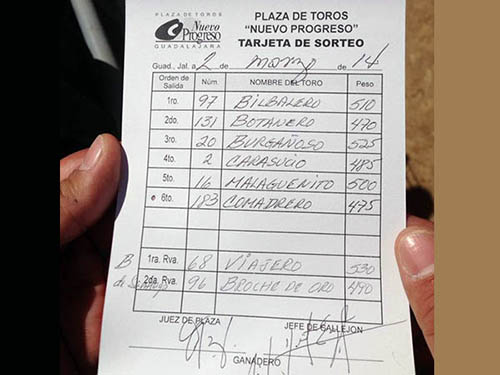 PLAZA DE TOROS
Nuevo Progreso
GUADALAJARA
PLAZA DE TOROS
"NUEVO PROGRESO"
TARJETA DE SORTEO
Guad., Jal. a 2 de marzo de 14
Orden de Salida Núm. NOMBRE DEL TORO Peso
1ro. 97 BILBALERO 510
2do. 131 BOTANERO 470
3ro. 20 BURGAÑOSO 525
4to. 2 CARASUCIO 485
5to. 16 MALAGUEÑITO 500
6to. 183 COMADRERO 475
B 1ra. Rva. 68 VIAJERO 530
de 2da. Rva. 96 BROCHE DE ORO 490
JUEZ DE PLAZA JEFE DE CALLEJON
GANADERO